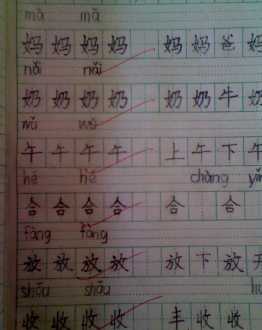 mā mā
妈 妈 妈 妈 妈 妈 爸 妈
nǎi nǎi
奶 奶 奶 奶 奶 奶 牛 奶
wǔ wǔ
午 午 午 午 上 午 下 午
hé hé chàng
合 合 合 合 合 合
fàng fàng
放 放 放 放 放 下 放 开
shōu shōu
收 收 收 收 丰 收 收